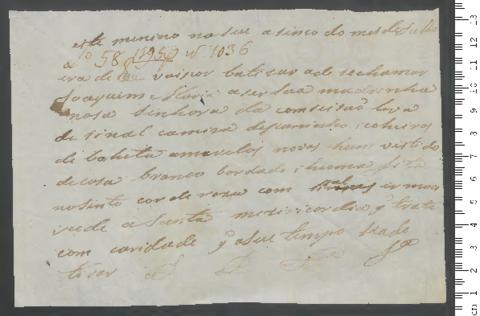 este menino nasseu a sinco do mes de Julho
a fo 58 1795 nº 1036
era de vai por batizar a de se chamar
Joaquim Maria a ser sua madrinha
nosa Senhora da comseisaõ leva
de sinal camiza de paninho, coheiros
de baheta amarelos novos hum vistido
de casa branco bordado, huma fita
no sinto cor de roza com
rede a Santa meziricordia q trate
com caridade q a seu tempo Seade
tirar